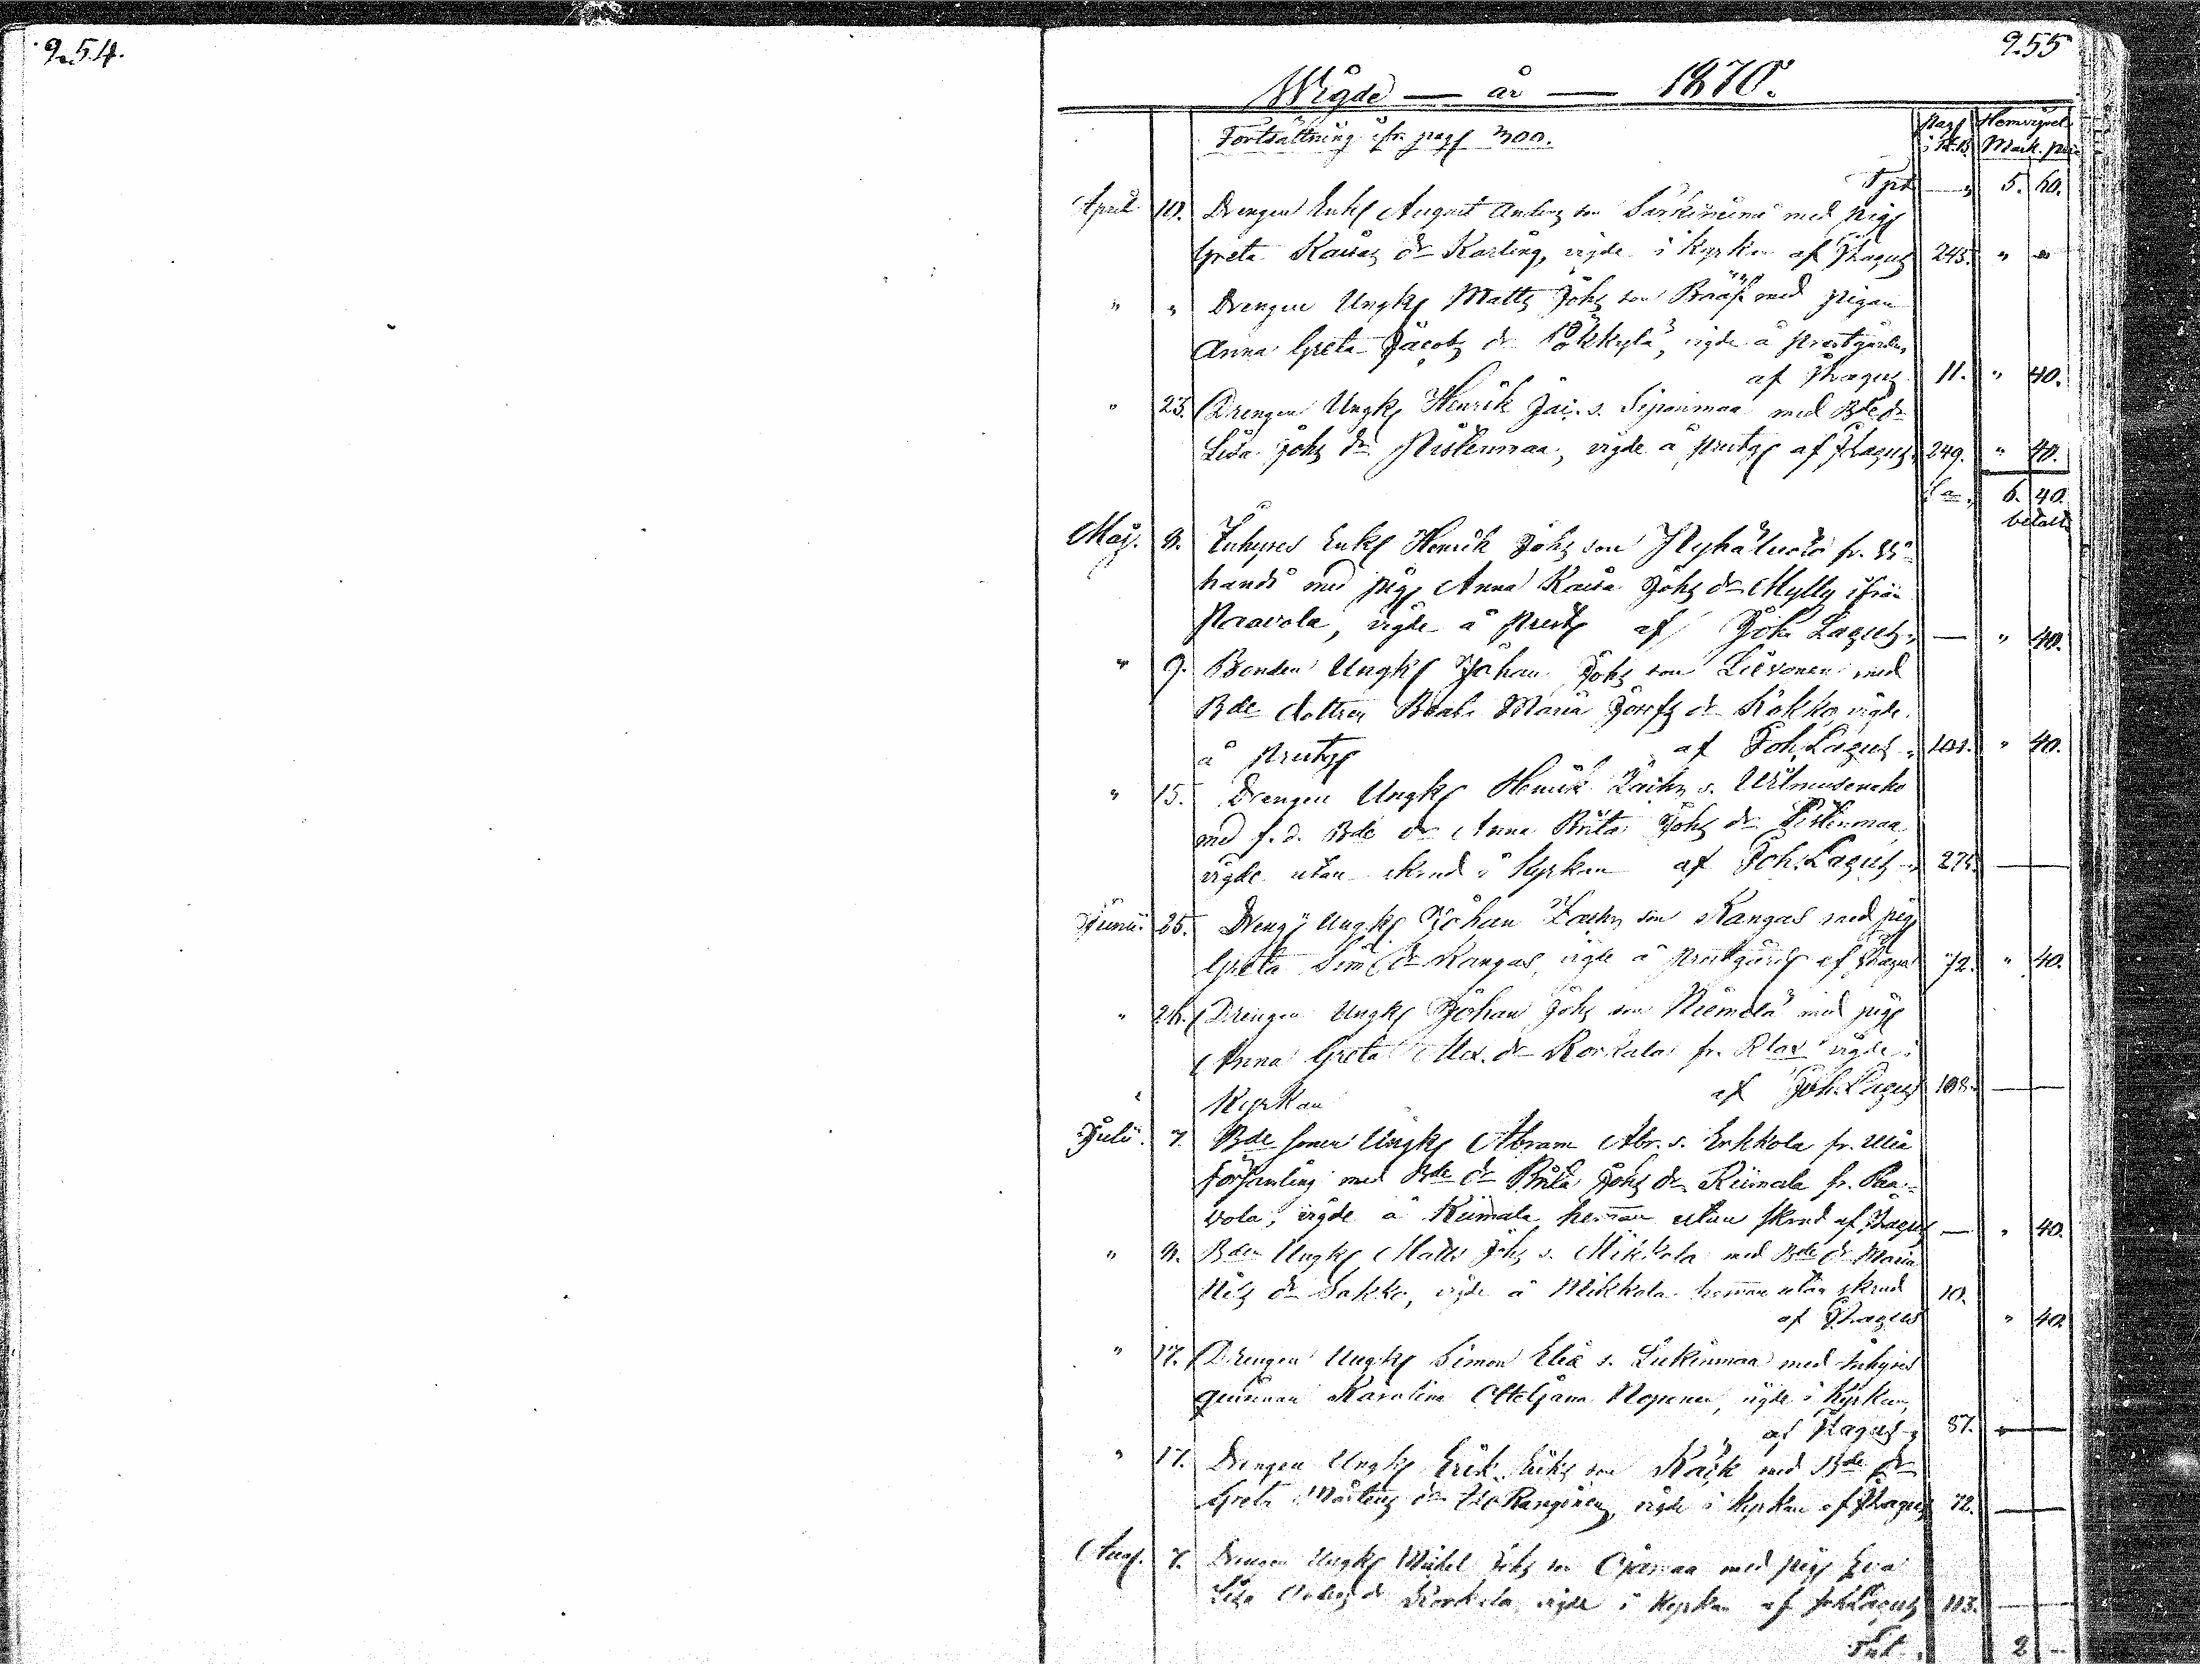 954.
955
Wigde — år — 1870.
Fortsättning ifr. pag 300.
Pag i K.B. Hemvigsel Mark. pni
Tprt — " 5. 60.
April 10. Drengen Enkl August Anders son Särkiniemi med pig
Greta Kaisa dr Karling, vigde i Kyrkan af JLagus 245. " "
" " Drengen Ungk Matts Johs son Brääs med pigan
Anna Greta Jacobs dr Pökkylä, vigde å prestgården
af JLagus 11. " 40.
" 23. Drengen Ungk Henrik Jac. s. Siponmaa med Bde dr
Lisa Johs dr Pistenmaa, vigde å prestg af JLagus 249. " 40.
Sa 6. 40.
betalt
Maj. 8. Inhyses Enkl Henrik Johs son Pyhäluoto fr.
handi med pig Anna Kaisa Johs dr Mylly ifrån
Paavola, vigde å Prestg af Joh Lagus — " 40.
" 9. Bonden Ungk Johan Johs son Lievonen med
Bde dottren Maria Josefs dr Kokko vigde
å Prestg af Joh. Lagus 101. " 40.
" 15. Drengen Ungk Henrik Zachs s. Wilmusenaho
med f.d. Bde dr Anna Brita Johs dr Pistenmaa,
vigde utan skrud i Kyrkan af Joh. Lagus 275. —
Junii. 25. Dreng Ungk Johan Zachs son Kangas med pig
Greta Sim dr Kangas, vigde å Prestgård af Lagus 72. " 40.
" 26. Drengen Ungk Johan Johs son Niemelä med pig
Anna Greta Alex. dr Korkala fr. vigde i
Kyrkan af Joh. Lagus 108. —
Julii. 7. Bde sonen Ungk Abram Abr. s. Erkkola fr. Uleå
församling med Bde dr Brita Johs dr Riimala fr. Paa-
vola, vigde å Riimala heman utan skrud af Lagus — " 40.
" 8. Bden Ungk Matts Johs s. Mikkola med Bde dr Maria
Nils dr Sakko, vigde å Mikkola heman utan skrud 10.
af JLagus " 40.
" 17. Drengen Ungk Simon Elia s. Lukinmaa med Inhyses
qvinnan Karolina Noponen, vigde i Kyrkan,
af JLagus 87. —
" 17. Drengen Ungk Erik Eriks son Kaik med Bde dr
Greta Mårtens dr vigde i Kyrkan af JLagus 72. —
Aug. 7. Drengen Ungk Mickel Johs son Ojamaa med pig Eva
Lisa Anders dr Korkala, vigde i Kyrkan af Joh Lagus 113. —
Tpt 2 —